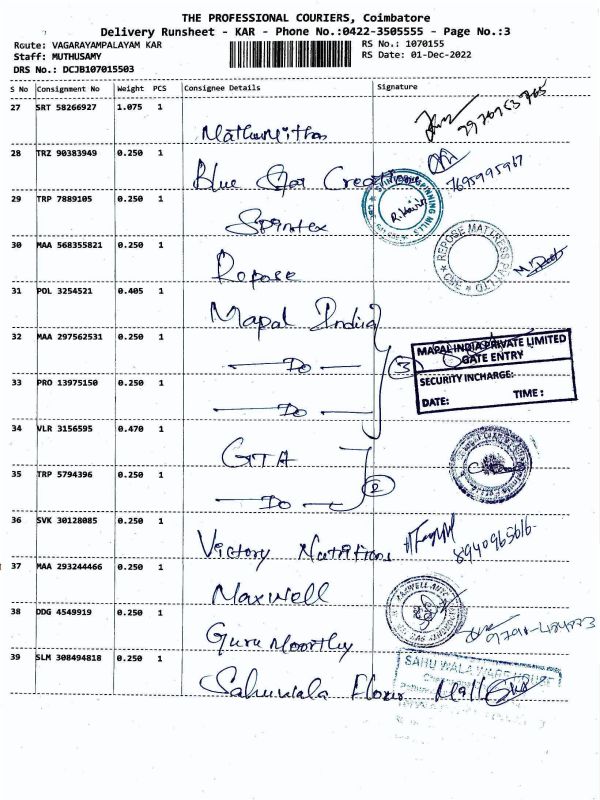 THE PROFESSIONAL COURIERS, Coimbatore
Delivery Runsheet - KAR - Phone No.:0422-3505555 - Page No.:3
Route: VAGARAYAMPALAYAM KAR RS No.: 1070155
Staff: MUTHUSAMY RS Date: 01-Dec-2022
DRS No.: DCJB107015503
S No Consignment No Weight PCS Consignee Details Signature
27 SRT 58266927 1.075 1
Mathumithas
28 TRZ 90383949 0.250 1
Blue Star Creations 7695995967
29 TRP 7889105 0.250 1
Sprintex SPINNING MILLS
30 MAA 568355821 0.250 1
Repose REPOSE MATTRESS PVT LTD
31 POL 3254521 0.405 1
Mapal India
32 MAA 297562531 0.250 1
Do 3
MAPAL INDIA PRIVATE LIMITED
GATE ENTRY
33 PRO 13975150 0.250 1
SECURITY INCHARGE:
Do
DATE: TIME:
34 VLR 3156595 0.470 1
GTA
35 TRP 5794396 0.250 1
Do 2
36 SVK 30128085 0.250 1
Victory Nutritions 8940965616
37 MAA 293244466 0.250 1
Maxwell
38 DDG 4549919 0.250 1
Guru Moorthy
39 SLM 308494818 0.250 1
SAHU WALA WAREHOUSE
Sahuwala Flour Mall